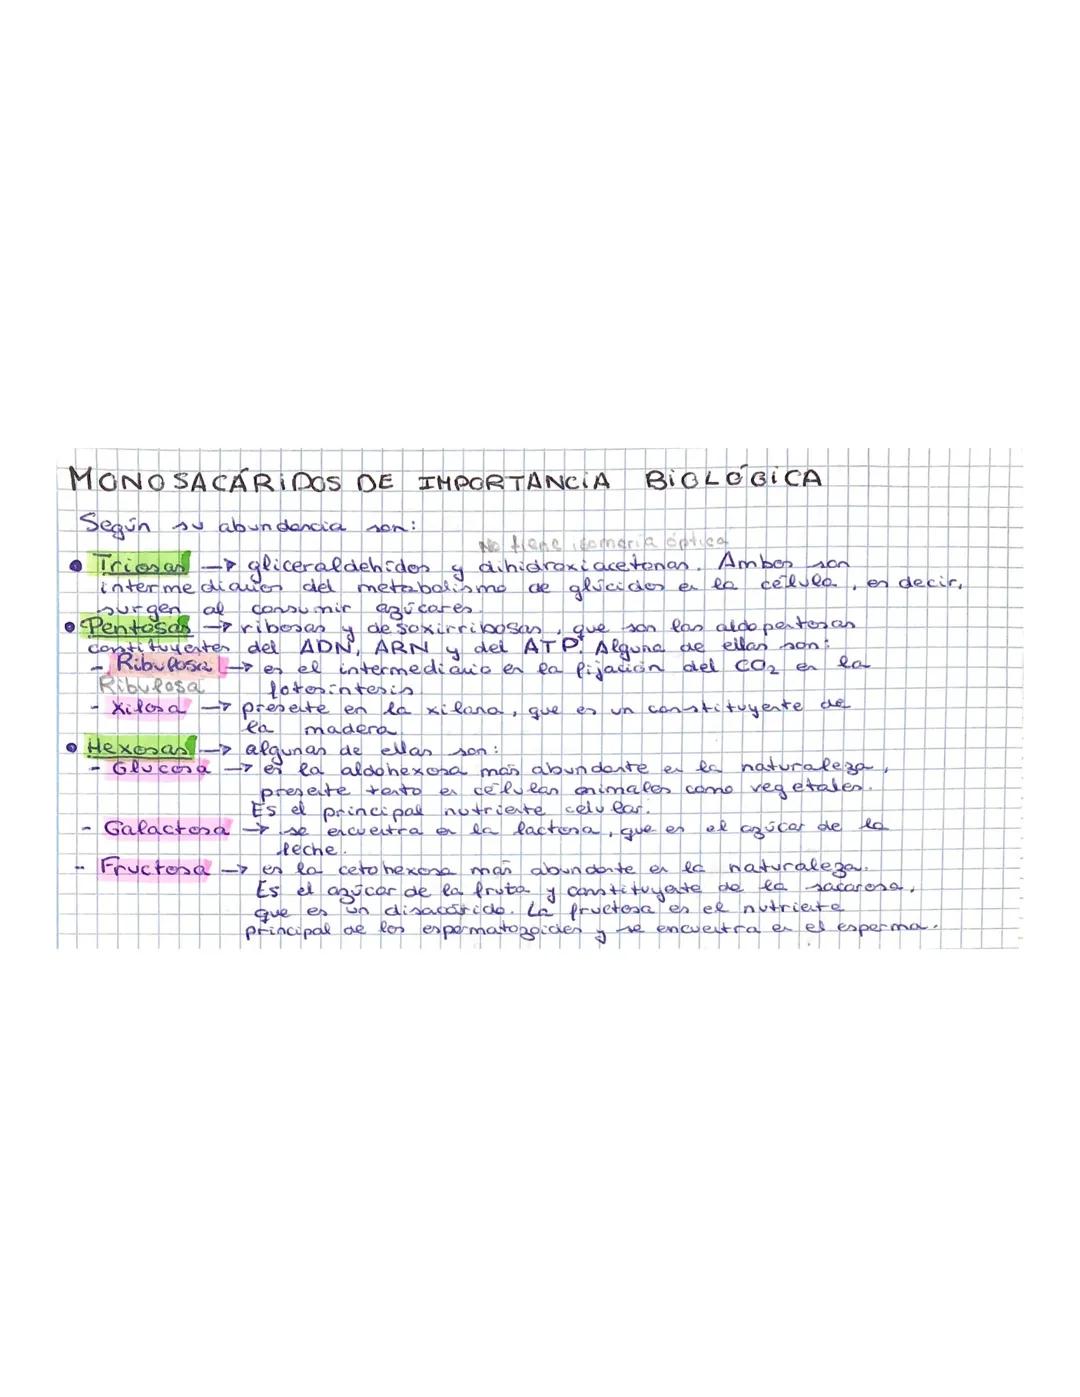 MONOSACÁRIDOS DE IMPORTANCIA BIOLÓGICA
Según su abundancia son:
No tiene isomería óptica
• Triosas → gliceraldehidos y dihidroxiacetonas. Ambos son
intermediarios del metabolismo de glúcidos en la célula, es decir,
surgen al consumir azúcares.
• Pentosas → ribosas y desoxirribosas, que son las aldopentosas
constituyentes del ADN, ARN y del ATP. Alguna de ellas son:
- Ribulosa → es el intermediario en la fijación del CO₂ en la
Ribulosa fotosíntesis
- Xilosa → presente en la xilana, que es un constituyente de
la madera
• Hexosas → algunas de ellas son:
- Glucosa → es la aldohexosa más abundante en la naturaleza,
presente tanto en células animales como vegetales.
Es el principal nutriente celular.
- Galactosa → se encuentra en la lactosa, que es el azúcar de la
leche.
- Fructosa → es la cetohexosa más abundante en la naturaleza.
Es el azúcar de la fruta y constituyente de la sacarosa,
que es un disacárido. La fructosa es el nutriente
principal de los espermatozoides y se encuentra en el esperma.